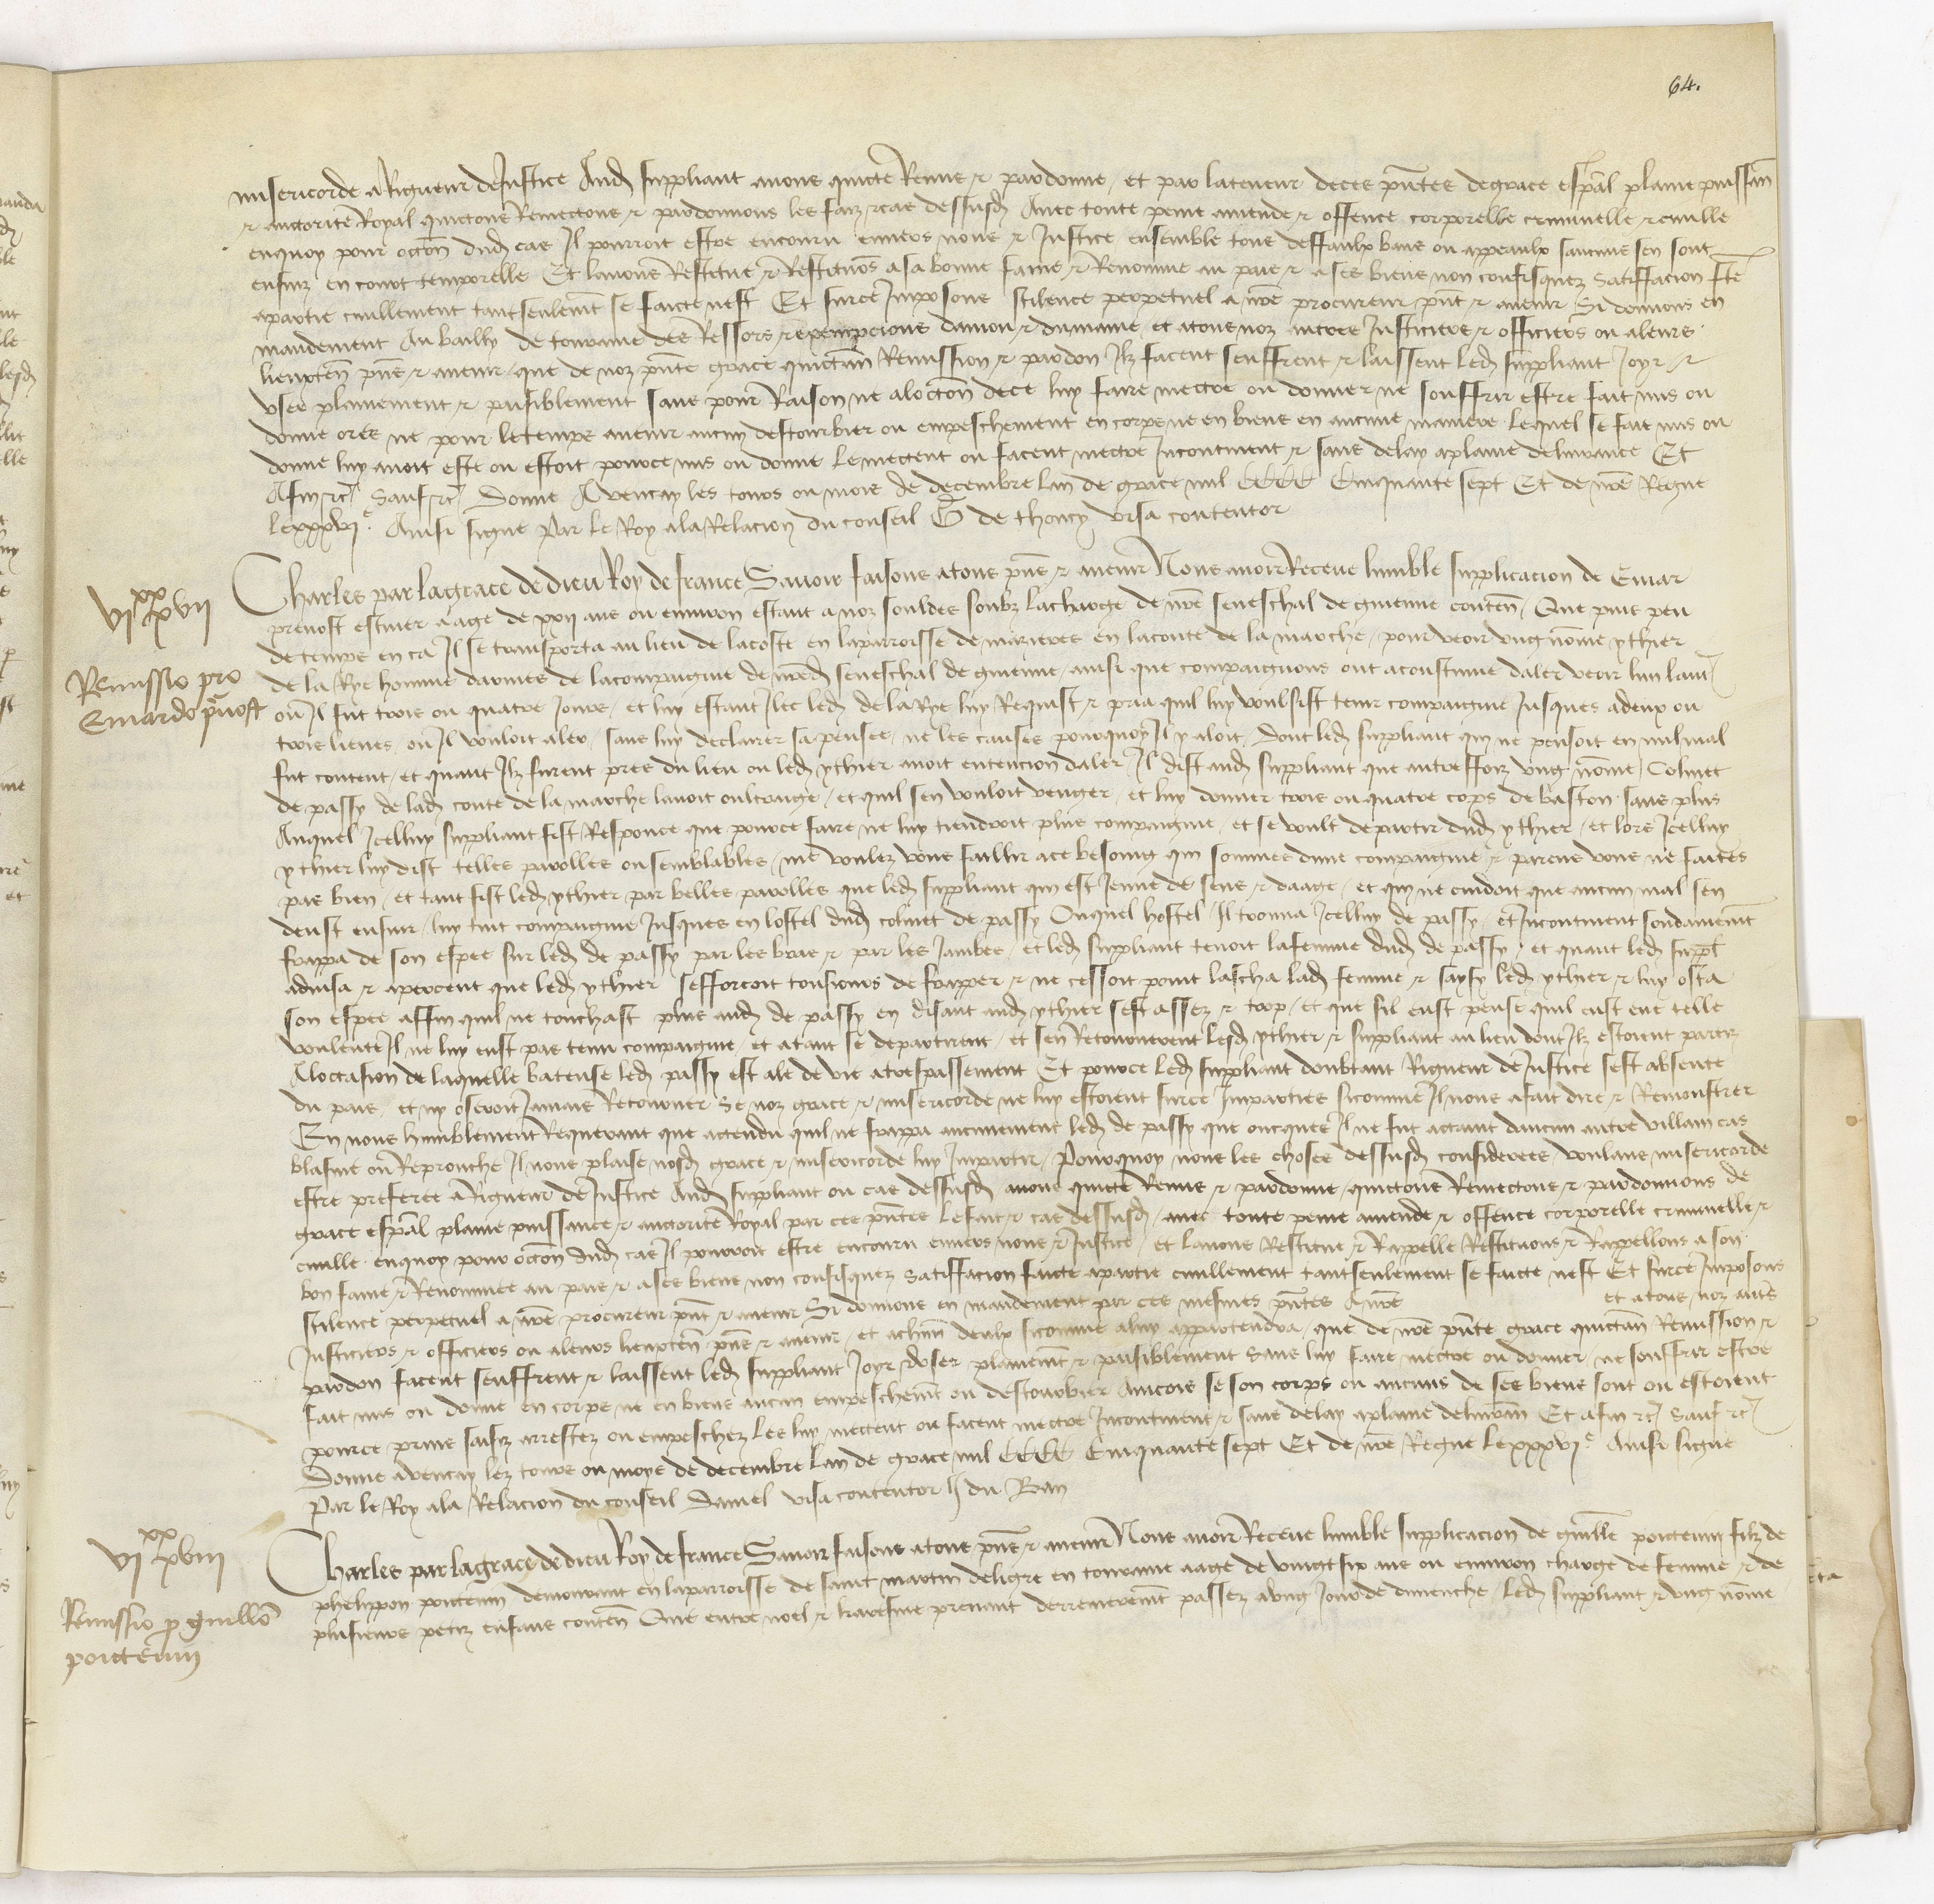 64.
misericorde a Rigueur de Justice Aud suppliant avons quicte Remis & pardonne / et par la teneur de ces pntes de grace espal plaine puissan
& auctorite Royal quictons Remectons & pardonnons les faiz & cas dessusd Avec toute peine amende & offence corporelle criminelle & civille
enquoy pour occon dud cas Il pourroit estre encouru envers nous & Justice ensemble tous deffaulx bans ou appeaulx saucuns sen sont
ensuiz en court temporelle Et lavons Restitue & Restituons a sa bonne fame & Renommee au pais & a ses biens non confisquez satiffacion fte
a partie civillement tant seulement se faicte nest Et surce Imposons silence perpetuel a nre procureur pnt & avenir Si donnons en
mandement Au bailly de touraine des Ressors & exempcions danjou & du maine et a tous noz autres Justiciers & officiers ou a leurs
lieuxten pns & avenir que de noz pnte grace quictan Remission & pardon Ilz facent seuffrent & laissent led suppliant Joyr &
user plainement & paisiblement sans pour Raison ne a loccon de ce luy faire mectre ou donner ne souffrir estre fait mis ou
donne ores ne pour le temps avenir aucun destourbier ou empeschement en corps ne en biens en aucune maniere Lequel se fait mis ou
donne luy avoit este ou estoit pource mis ou donne Le mectent ou facent mectre Incontinent & sans delay a plaine delivrance Et
Afin &c Sauf &c Donne A vencay les tours ou mois de decembre Lan de grace mil CCCC Cinquante sept Et de nre Regne
le xxxvie Ainsi signe Par le Roy a la Relacion du conseil G de thoucy visa contentor
vi xx xvii
Remissio pro
Emardo pvost
Charles par la grace de dieu Roy de france Savoir faisons a tous pns & avenir Nous avoir Receue humble supplicacion de Emar
prevost escuier aage de xxii ans ou environ estant a noz souldes soubz la charge de nre seneschal de guienne conten Que puis peu
de temps en ca Il se transporta au lieu de la coste en la parroisse de mazieres en la conte de la marche / pour veoir ung nome ythier
de la Rye homme darmes de la compaignie de nred seneschal de guienne / ainsi que compaignons ont acoustume daler veoir lun laut
ou Il fut trois ou quatre jours / et luy estant Ilec led de la Rye luy Requist & pria quil luy voulsist tenir compaignie Jusques a deux ou
trois lieues / ou Il vouloit aler / sans luy declairer sa pensee / ne les causes pourquoy Il y aloit / Dont led suppliant qui ne pensoit en nul mal
fut content / et quant Ilz furent pres du lieu ou led ythier avoit entencion daler Il dist aud suppliant que autresfoiz ung nome Colinet
de passy de lad conte de la marche lavoit oultraige / et quil sen vouloit venger / et luy donner trois ou quatre cops de baston sans plus
Auquel Icelluy suppliant fist Responce que pource faire ne luy tiendroit plus compaignie / et se voult departir dud ythier / et lors Icelluy
ythier luy dist telles parolles ou semblables / me voulez vous faillir a ce besoing qui sommes dune compaignie & parens vous ne faictes
pas bien / et tant fist led ythier par belles parolles que led suppliant qui est Jeune de sens & daage / et qui ne cuidoit que aucun mal sen
deust ensuir / luy tint compaignie Jusques en lostel dud colinet de passy Ouquel hostel Il trouva Icelluy de passy / et Incontinent soudainement
frappa de son espee sur led de passy par les bras & par les Jambes / et led suppliant tenoit la femme dud de passy / et quant led suppl
advisa & apercent que led ythier sefforcoit tousjours de frapper & ne cessoit point lascha lad femme & saysy led ythier & luy osta
son espee affin quil ne touchast plus aud de passy en disant aud ythier sest assez & trop / et que sil eust pense quil eust eue telle
voulente Il ne luy eust pas tenu compaignie / et atant se departirent / et sen Retournerent lesd ythier & suppliant au lieu dont Ilz estoient partiz
A loccasion de laquelle bateuse led passy est ale de vie a trespassement Et pource led suppliant doubtant Rigueur de Justice sest absente
du pais / et ny oseroit Jamais Retourner se noz grace & misericorde ne luy estoient surce Imparties si comme Il nous a fait dire & Remonstrer
En nous humblement Requerant que actendu quil ne frappa aucunement led de passy que oncques Il ne fut actaint daucun autre villain cas
blasme ou Reprouche Il nous plaise nosd grace & misericorde luy Impartir / Pourquoy nous les choses dessusd considerees voulans misericorde
estre preferee a Rigueur de Justice Aud suppliant ou cas dessusd avons quicte Remis & pardonne / quictons Remectons & pardonnons de
grace espal plaine puissance & auctorite Royal par ces pntes Le fait & cas dessusd / avec toute peine amende & offence corporelle criminelle &
civille enquoy pour occon dud cas Il pourroit estre encouru envers nous & Justice / et lavons Restitue & Rappelle Restituons & Rappellons a son
bon fame & Renommee au pais & a ses biens non confisquez Satiffacion faicte a partie civillement tant seulement se faicte nest Et surce Imposons
silence perpetuel a nre procureur pnt & avenir Si donnons en mandement par ces mesmes pntes A nre et a tous noz autes
Justiciers & officiers ou a leurs lieuxten pns & avenir / et a chun deulx si comme a luy appartendra / que de nre pnte grace quictan Remission &
pardon facent seuffrent & laissent led suppliant Joyr & user plainemt & paisiblement sans luy faire mectre ou donner ne souffrir estre
fait mis ou donne en corps ne en biens aucun empeschemt ou destourbier Aincois se son corps ou aucuns de ses biens sont ou estoient
pource prins saisiz arrestez ou empeschez Les luy mectent ou facent mectre Incontinent & sans delay a plaine delivran Et afin &c Sauf &c
Donne a vencay lez tours ou moys de decembre Lan de grace mil CCCC Cinquante sept Et de nre Regne Le xxxvie Ainsi signe
Par le Roy a la Relacion du conseil Daniel visa contentor J du Ban
vi xx xviii
Remissio p guillo
poictevin
Charles par la grace de dieu Roy de france Savoir faisons a tous pns & avenir Nous avoir Receue humble supplicacion de guille poictevin filz de
phelippon poictevin demourant en la parroisse de saint martin de ligre en touraine aage de vingt six ans ou environ charge de femme & de
plusieurs petiz enfans conten Que entre noel & karesme prenant derrenierement passez a ung Jour de dimenche / led suppliant & ung nome